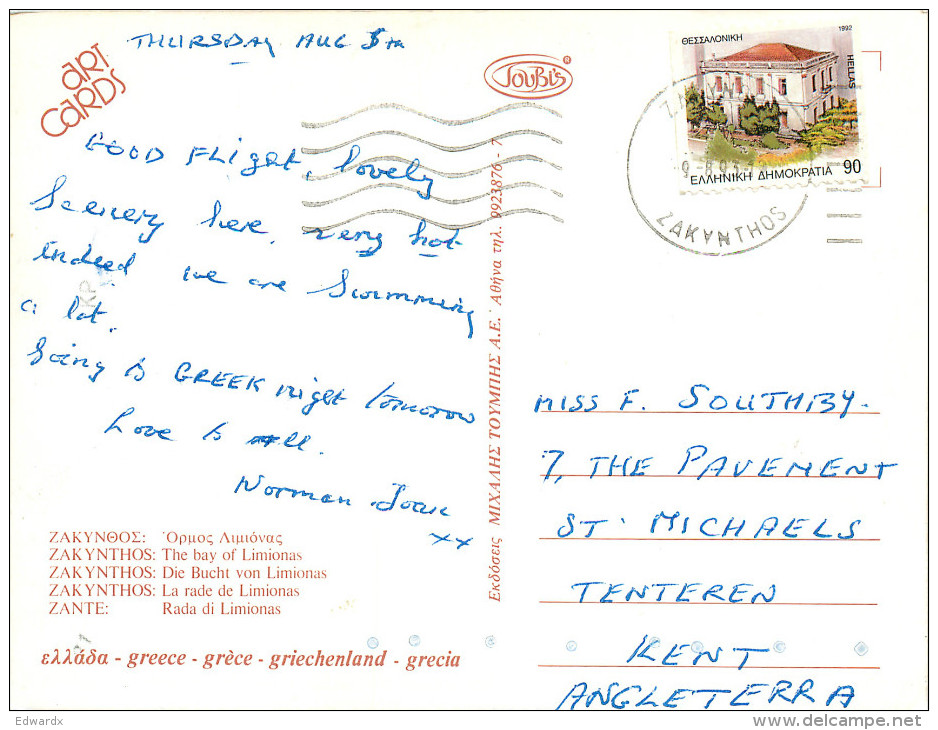 THURSDAY AUG 5TH
GOOD FLIGHT, lovely
Scenery here, very hot
indeed we are Swimming
a lot.
Going to GREEK night tomorrow
Love to all.
Norman Joan
xx
art
cards
ΖΑΚΥΝΘΟΣ: Όρμος Λιμιόνας
ZAKYNTHOS: The bay of Limionas
ZAKYNTHOS: Die Bucht von Limionas
ZAKYNTHOS: La rade de Limionas
ZANTE: Rada di Limionas
ελλάδα - greece - grèce - griechenland - grecia
Εκδόσεις ΜΙΧΑΛΗΣ ΤΟΥΜΠΗΣ Α.Ε. Αθήνα τηλ. 9923876 - 7
TOUBI'S ®
ΘΕΣΣΑΛΟΝΙΚΗ
1992
HELLAS
ΕΛΛΗΝΙΚΗ ΔΗΜΟΚΡΑΤΙΑ 90
ZAKYNTHOS
MISS F. SOUTHBY.
7, THE PAVEMENT
ST. MICHAELS
TENTEREN
KENT
ANGLETERRA
KP
Edwardx
delcampe.net